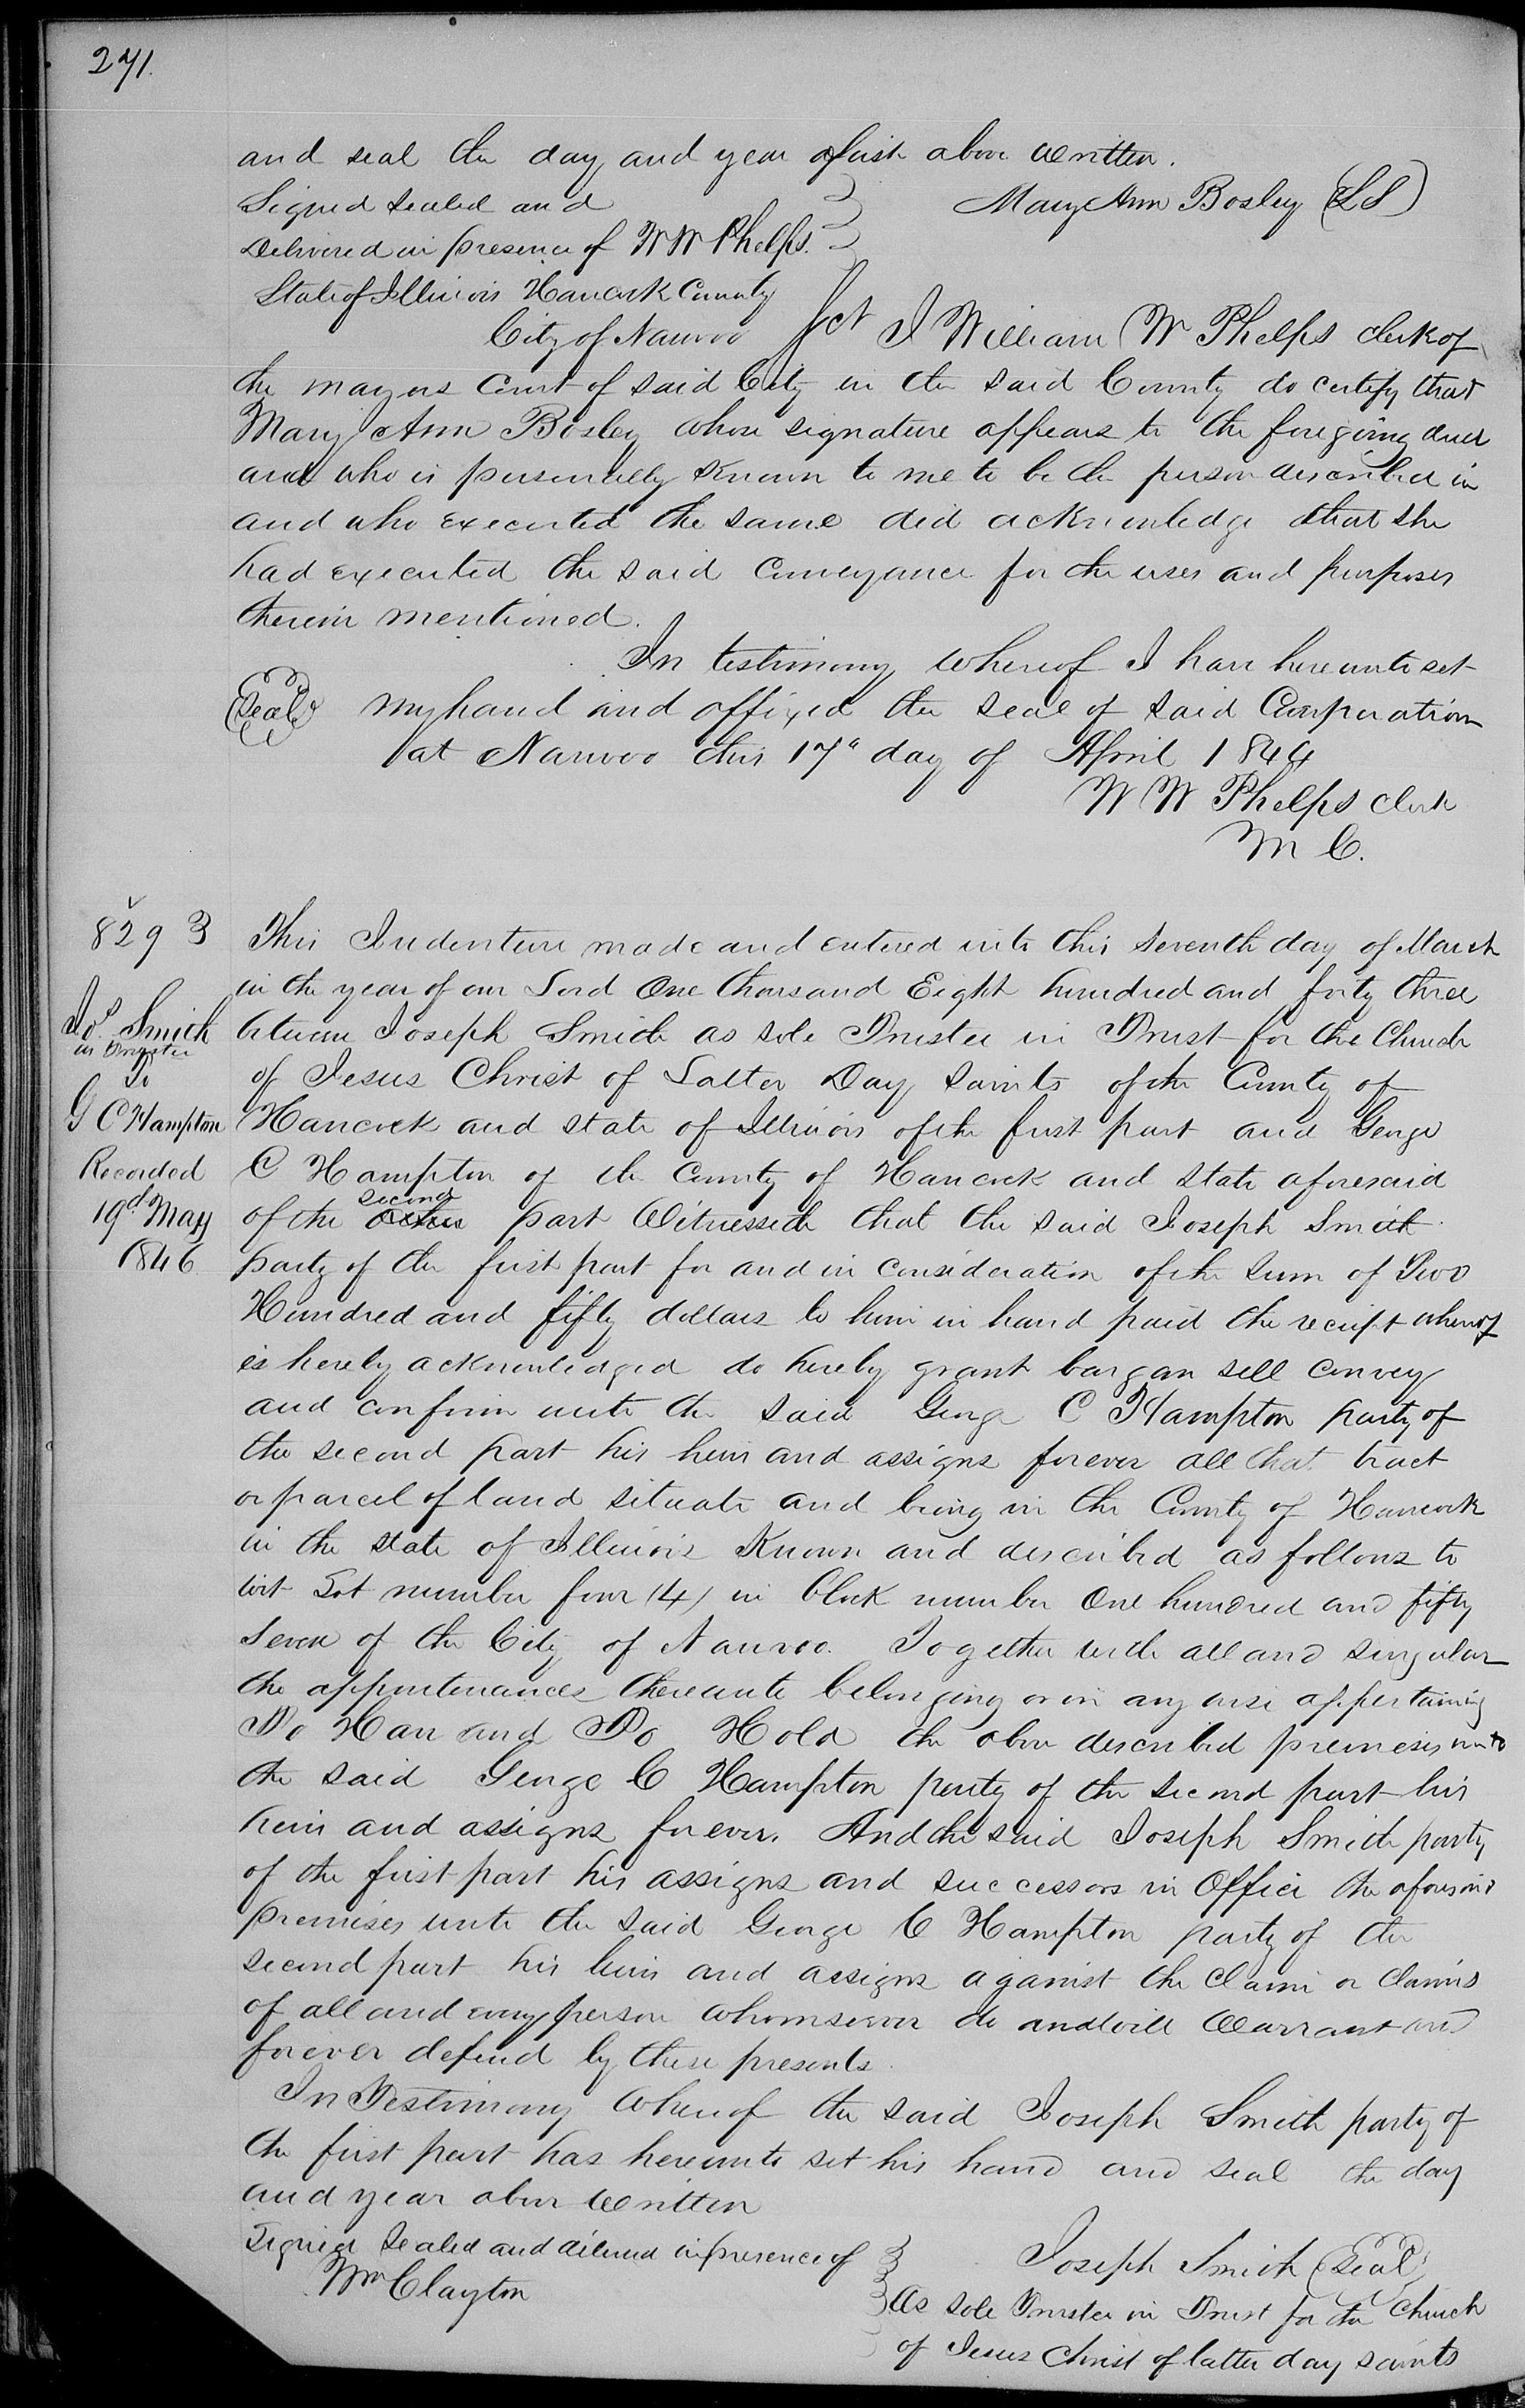 271.
and seal the day and year first above written.
Signed sealed and Mary Ann Bosley (LS)
Delivered in presence of W W Phelps.
State of Illinois Hancock County
City of Nauvoo Sct I William W Phelps clerk of
the mayors Court of said City in the said County do certify that
Mary Ann Bosley whose signature appears to the foregoing deed
and who is personally known to me to be the person described in
and who executed the same did acknowledge that she
had executed the said Conveyance for the uses and purposes
therein mentioned.
In testimony whereof I have hereunto set
(Seal) my hand and affixed the seal of said Corporation
at Nauvoo this 17" day of April 1844
W W Phelps clerk
M C.
8293 This Indenture made and entered into this seventh day of March
in the year of our Lord One thousand Eight hundred and forty three
Jos Smith between Joseph Smith as sole Trustee in Trust for the Church
as Trustee
To of Jesus Christ of Latter Day Saints of the County of
G C Hampton Hancock and State of Illinois of the first part and George
Recorded C Hampton of the County of Hancock and State aforesaid
second
19d May of the part Witnesseth that the said Joseph Smith
1846 party of the first part for and in consideration of the sum of Two
Hundred and fifty dollars to him in hand paid the receipt whereof
is hereby acknowledged do hereby grant bargan sell convey
and confirm unto the said George C Hampton party of
the second part his heirs and assigns forever all that tract
or parcel of land situate and being in the County of Hancock
in the state of Illinois Known and described as follows to
wit Lot number four (4) in block number One hundred and fifty
seven of the City of Nauvoo. Together with all and singular
the appurtenances thereunto belonging or in any wise appertaining
To Have and To Hold the above described premises unto
the said George C Hampton party of the second part his
heirs and assigns forever. And the said Joseph Smith party
of the first part his assigns and successors in Office the aforesaid
premises unto the said George C Hampton party of the
second part his heirs and assigns against the claim or claims
of all and every person whomsoever do and will Warrant and
forever defend by these presents.
In Testimony whereof the said Joseph Smith party of
the first part has hereunto set his hand and seal the day
and year above written
Signed Sealed and delivered in presence of Joseph Smith (Seal)
Wm Clayton As sole Trustee in Trust for the Church
of Jesus Christ of latter day saints